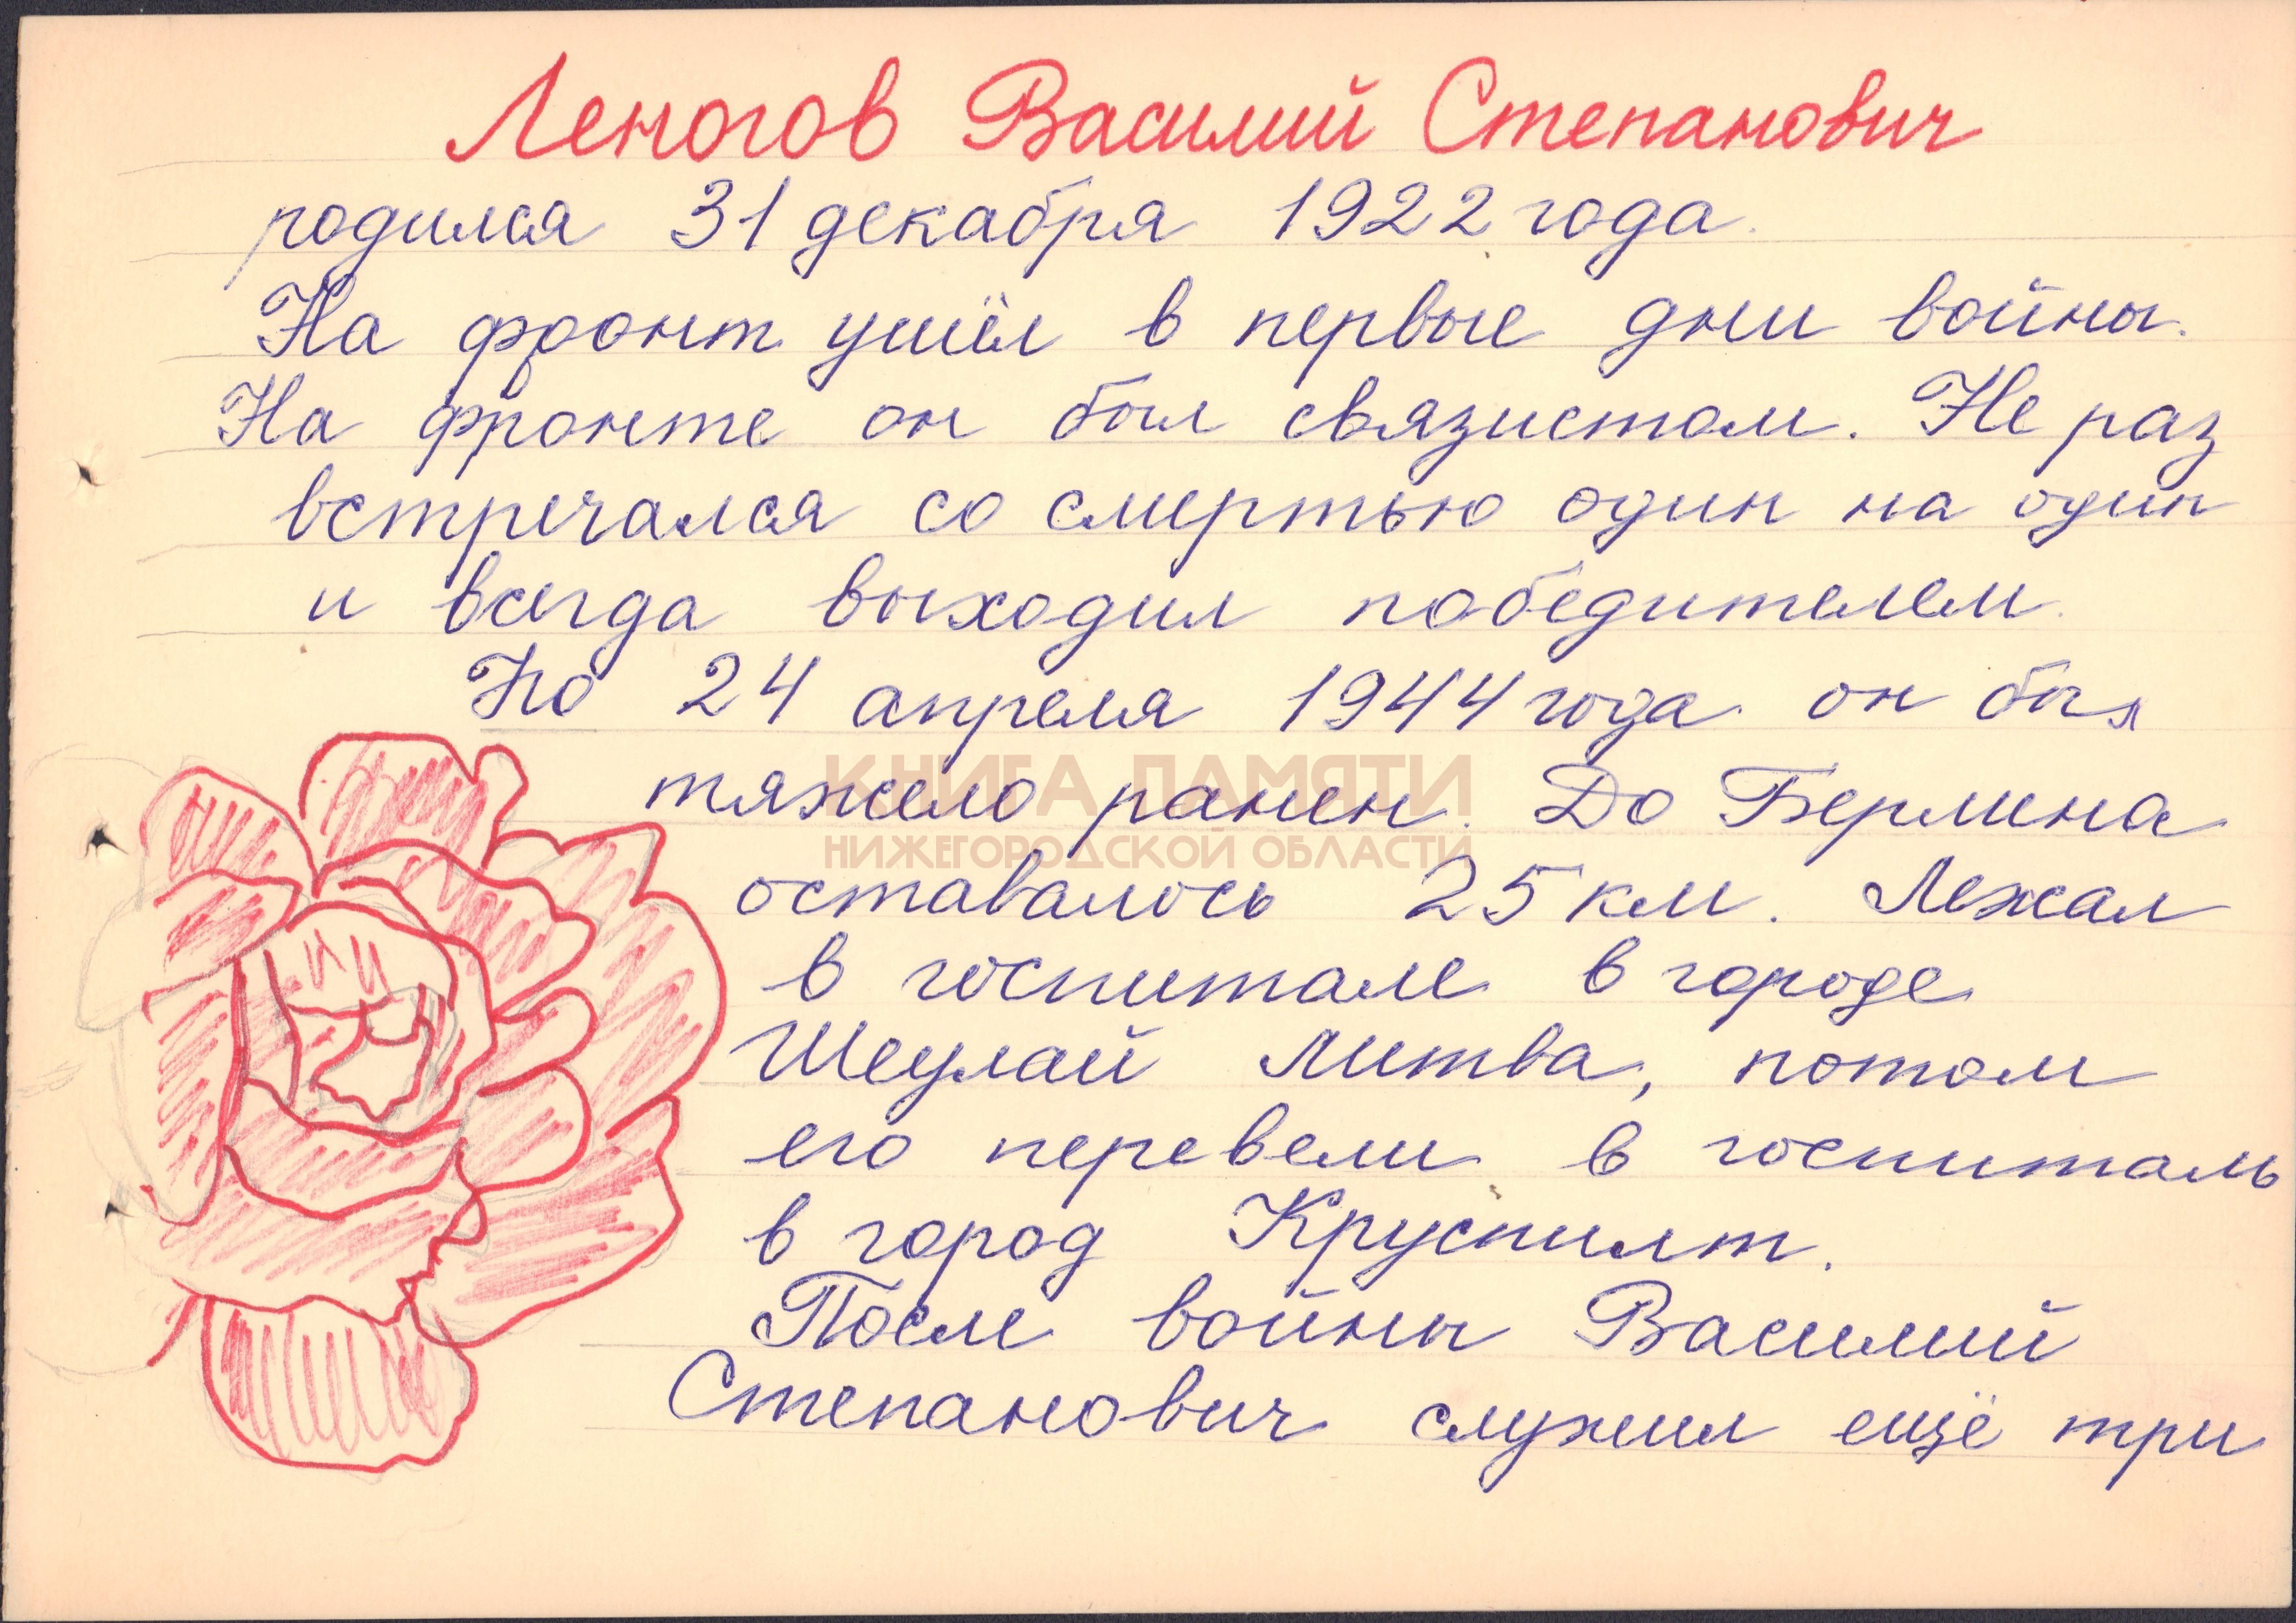 Леногов Василий Степанович
родился 31 декабря 1922 года.
На фронт ушёл в первые дни войны.
На фронте он был связистом. Не раз
встречался со смертью один на один
и всегда выходил победителем.
Но 24 апреля 1944 года он был
тяжело ранен. До Берлина
КНИГА ПАМЯТИ
НИЖЕГОРОДСКОЙ ОБЛАСТИ
оставалось 25 км. Лежал
в госпитале в городе
Шеулай Литва, потом
его перевели в госпиталь
в город Круспилт.
После войны Василий
Степанович служил ещё три